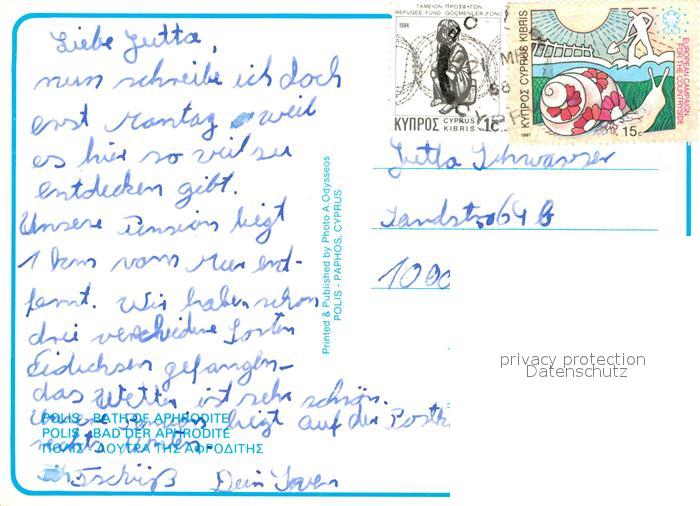 Liebe Jutta,
nun schreibe ich doch
erst Montag weil
es hier so viel zu
entdecken gibt.
Unsere Pension liegt
1 km vom Meer ent-
fernt. Wir haben schon
drei verschiedene Sorten
Eidichsen gefangen
das Wetter ist sehr schön.
Unsere Pension liegt auf der Postk
rechts unten.
Tschüß Dein
POLIS - BATH OF APHRODITE
POLIS - BAD DER APHRODITE
ΠΟΛΙΣ - ΛΟΥΤΡΑ ΤΗΣ ΑΦΡΟΔΙΤΗΣ
Printed & Published by Photo A.Odysseos
POLIS - PAPHOS, CYPRUS
ΤΑΜΕΙΟΝ ΠΡΟΣΦΥΓΩΝ
REFUGEE FUND GÖÇMENLER FONU
1984
ΚΥΠΡΟΣ CYPRUS KIBRIS 1c
ΚΥΠΡΟΣ CYPRUS KIBRIS
EUROPEAN CAMPAIGN
FOR THE COUNTRYSIDE
1987
15c
Jutta
64 b
1000
privacy protection
Datenschutz